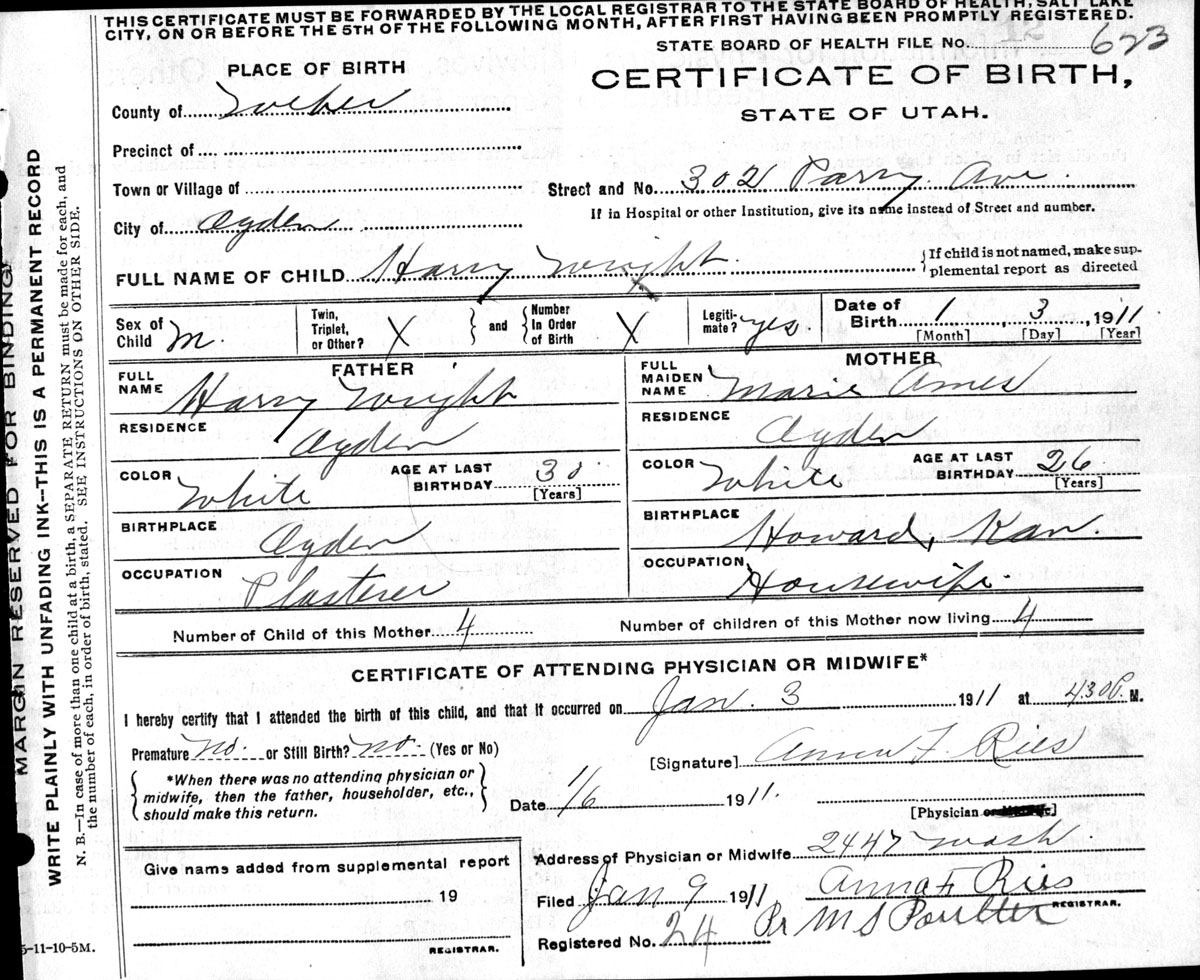 THIS CERTIFICATE MUST BE FORWARDED BY THE LOCAL REGISTRAR TO THE STATE BOARD OF HEALTH, SALT LAKE
CITY, ON OR BEFORE THE 5TH OF THE FOLLOWING MONTH, AFTER FIRST HAVING BEEN PROMPTLY REGISTERED.
STATE BOARD OF HEALTH FILE No. 623
PLACE OF BIRTH
CERTIFICATE OF BIRTH,
STATE OF UTAH.
County of Weber
Precinct of
Town or Village of
Street and No. 302 Parry Ave.
If in Hospital or other Institution, give its name instead of Street and number.
City of Ogden
FULL NAME OF CHILD Harry Wright
{If child is not named, make sup-
plemental report as directed
Sex of Child M.
Twin, Triplet, or Other? X
and
Number In Order of Birth X
Legiti-mate? yes
Date of Birth 1, 3, 1911
[Month] [Day] [Year]
FATHER
FULL NAME Harry Wright
RESIDENCE Ogden
COLOR White
AGE AT LAST BIRTHDAY 30 [Years]
BIRTHPLACE Ogden
OCCUPATION Plasterer
MOTHER
FULL MAIDEN NAME Marie Ames
RESIDENCE Ogden
COLOR White
AGE AT LAST BIRTHDAY 26 [Years]
BIRTHPLACE Howard, Kan.
OCCUPATION Housewife.
Number of Child of this Mother 4
Number of children of this Mother now living 4
CERTIFICATE OF ATTENDING PHYSICIAN OR MIDWIFE*
I hereby certify that I attended the birth of this child, and that it occurred on Jan. 3 1911 at 430P. M.
Premature no. or Still Birth? no. (Yes or No)
[Signature] Anna F. Ries
*When there was no attending physician or
midwife, then the father, householder, etc.,
should make this return.
Date 1/6 1911.
[Physician
Address of Physician or Midwife 2447 Wash.
Give name added from supplemental report
19
REGISTRAR.
Filed Jan 9 1911 Anna F Ries
REGISTRAR.
Registered No. 24 Pr M S Poulter
5-11-10-5M.
MARGIN RESERVED FOR BINDING
WRITE PLAINLY WITH UNFADING INK--THIS IS A PERMANENT RECORD
N. B.—In case of more than one child at a birth, a SEPARATE RETURN must be made for each, and
the number of each, in order of birth, stated. SEE INSTRUCTIONS ON OTHER SIDE.